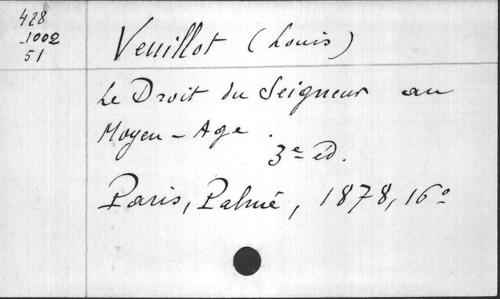 428
1002
51
Veuillot (Louis)
Le Droit du Seigneur au
Moyen-Age.
3e éd.
Paris, Palmé, 1878, 16º